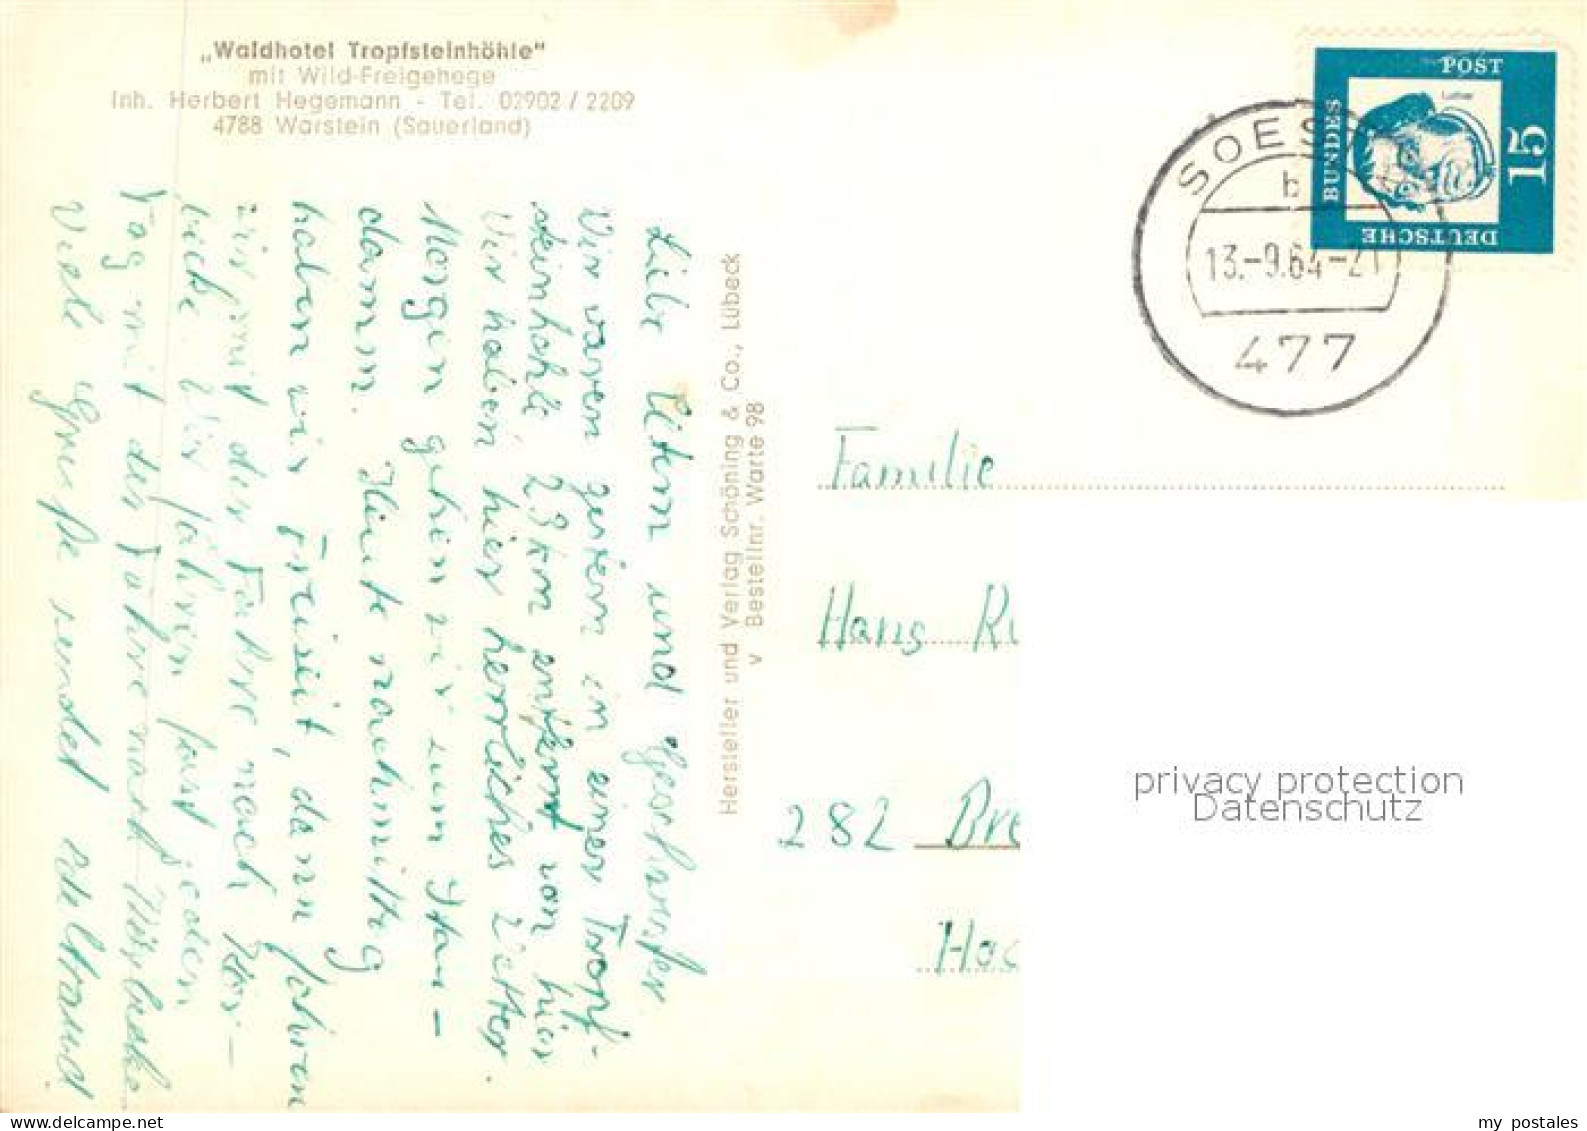 „Waldhotel Tropfsteinhöhle"
mit Wild-Freigehege
Inh. Herbert Hegemann - Tel. 02902 / 2209
4788 Warstein (Sauerland)
Liebe Eltern und Geschwister
Wir waren gestern in einer Tropf-
steinhöhle, 23 km entfernt von hier
Wir haben hier herrliches Wetter.
Morgen gehen wir zum Stau-
damm. Heute nachmittag
haben wir Freizeit, dann fahren
wir mit der Fähre nach Kör-
becke. Wir fahren fast jeden
Tag mit der Fähre nach Körbecke
Viele Grüße sendet Edeltraud
Hersteller und Verlag Schöning & Co., Lübeck
v Bestellnr. Warte 98
DEUTSCHE
BUNDES
POST
15
Luther
SOEST
b
13.-9.64-21
477
Familie
Hans Ru
282 Bre
Hoc
privacy protection
Datenschutz
www.delcampe.net
my_postales